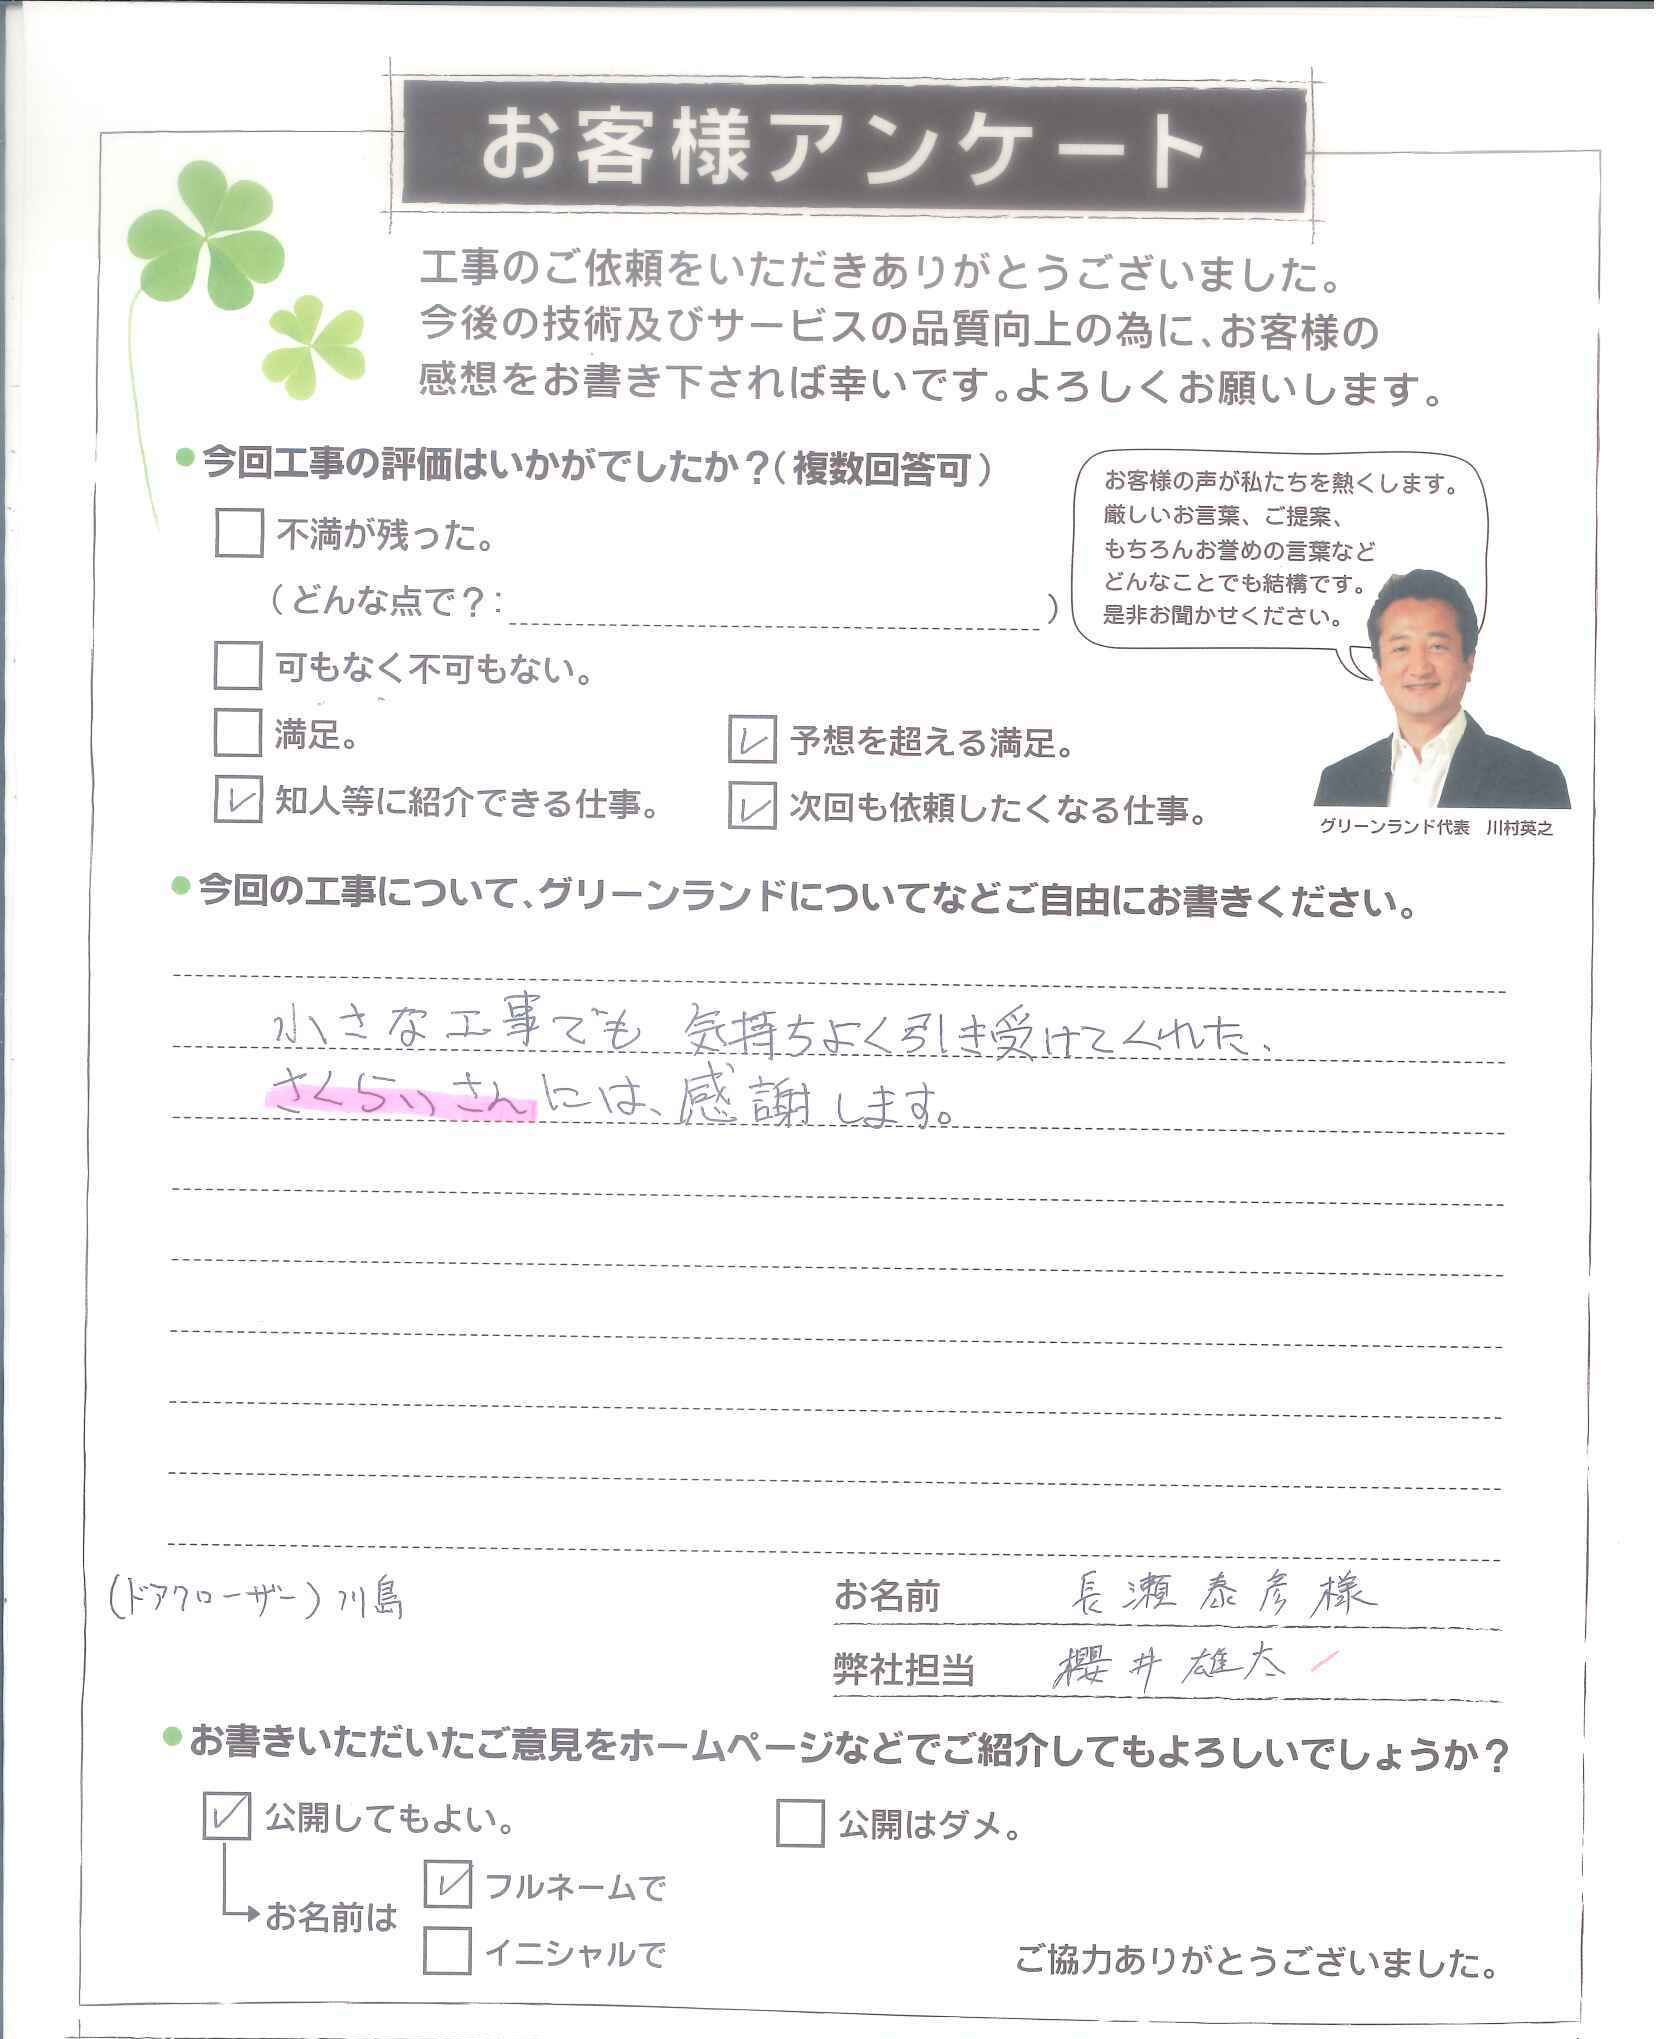 お客様アンケート
工事のご依頼をいただきありがとうございました。
今後の技術及びサービスの品質向上の為に、お客様の
感想をお書き下されば幸いです。よろしくお願いします。
●今回工事の評価はいかがでしたか？（複数回答可）
不満が残った。
（どんな点で？：　）
可もなく不可もない。
満足。
予想を超える満足。
知人等に紹介できる仕事。
次回も依頼したくなる仕事。
お客様の声が私たちを熱くします。
厳しいお言葉、ご提案、
もちろんお誉めの言葉など
どんなことでも結構です。
是非お聞かせください。
グリーンランド代表　川村英之
●今回の工事について、グリーンランドについてなどご自由にお書きください。
小さな工事でも 気持ちよく引き受けてくれた、
さくらいさんには、感謝します。
(ドアクローザー) 川島
お名前　長瀬泰彦様
弊社担当　櫻井雄太
●お書きいただいたご意見をホームページなどでご紹介してもよろしいでしょうか？
公開してもよい。
公開はダメ。
お名前は
フルネームで
イニシャルで
ご協力ありがとうございました。